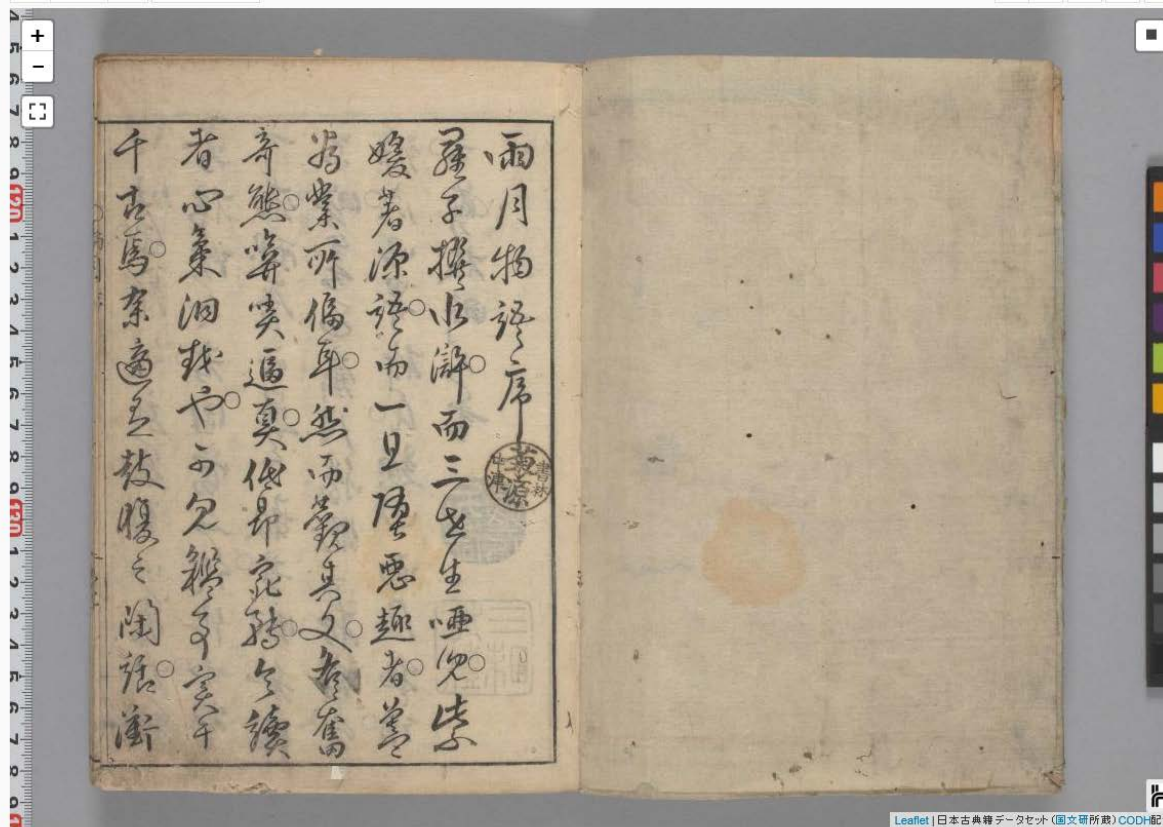 雨月物語序
羅子撰水滸。而三世生唖児。紫
媛著源語。而一旦堕悪趣者。蓋
為業所偪耳。然而観其文。各奮
奇態。唵哢逼真。低昂宛転。令読
者心気洞越也。可見鑑事実于
千古焉。余適有鼓腹之閑話。衝
Leaflet | 日本古典籍データセット(国文研所蔵)CODH配